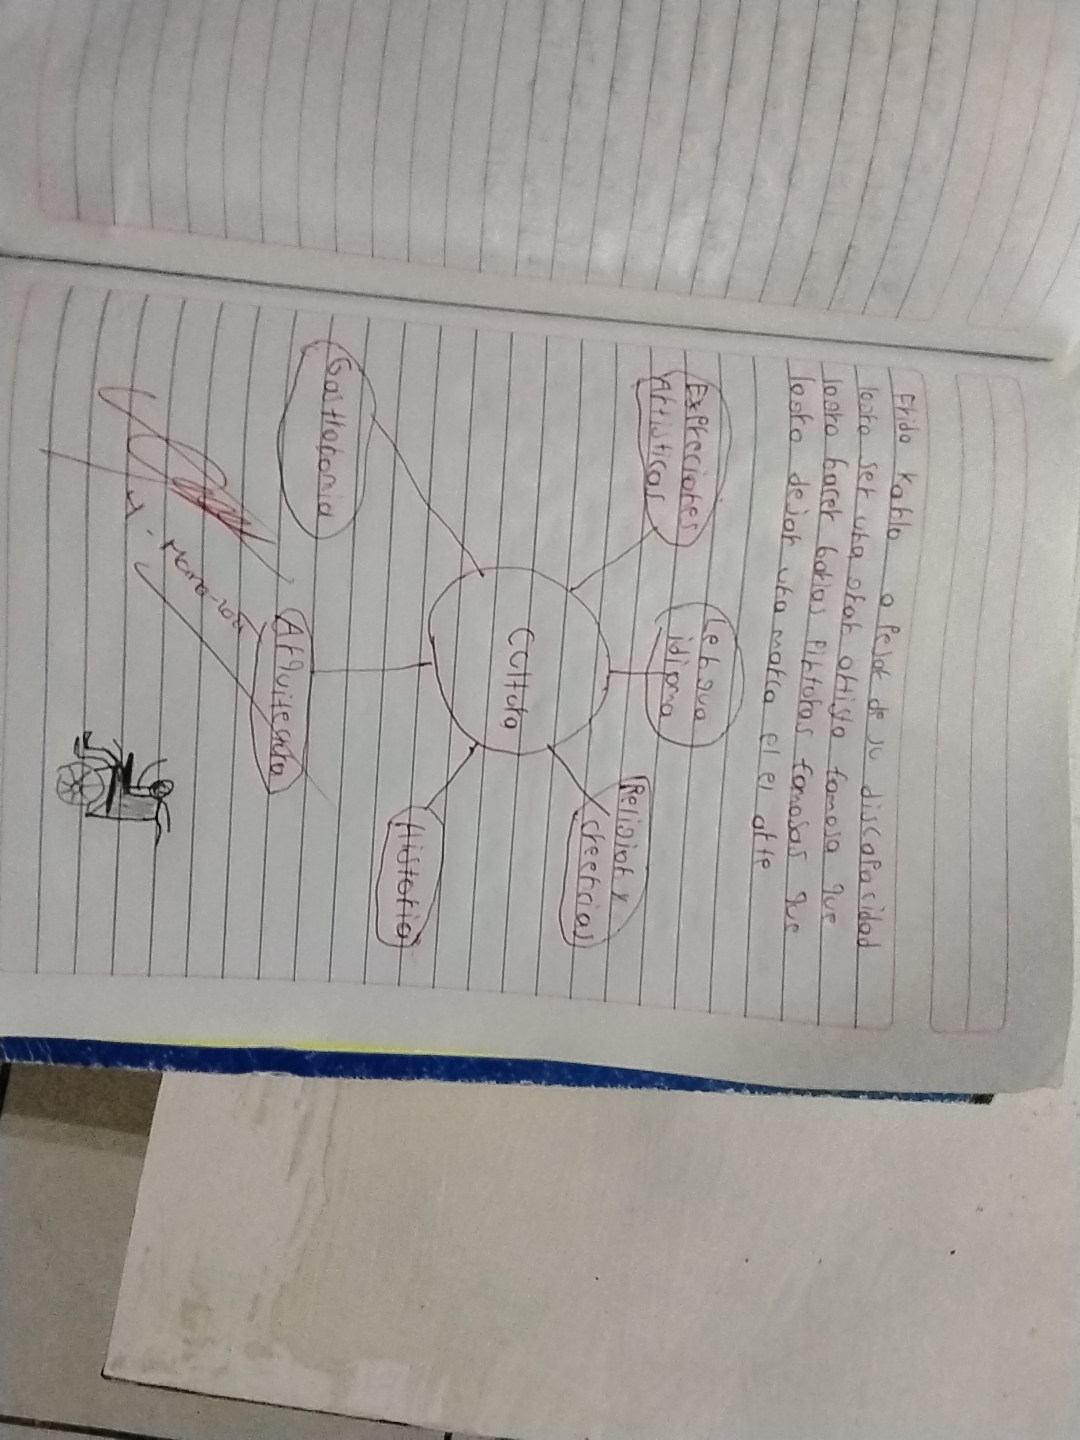 Frida Kahlo a pesar de su discapacidad
logro ser una gran artista famosa que
logro hacer barias pinturas famosas que
logro dejar una marca el el arte
Expreciones
Artisticas
Lengua
idioma
Religion y
creencias
Cultura
Historia
Gastronomia
Arquitectura